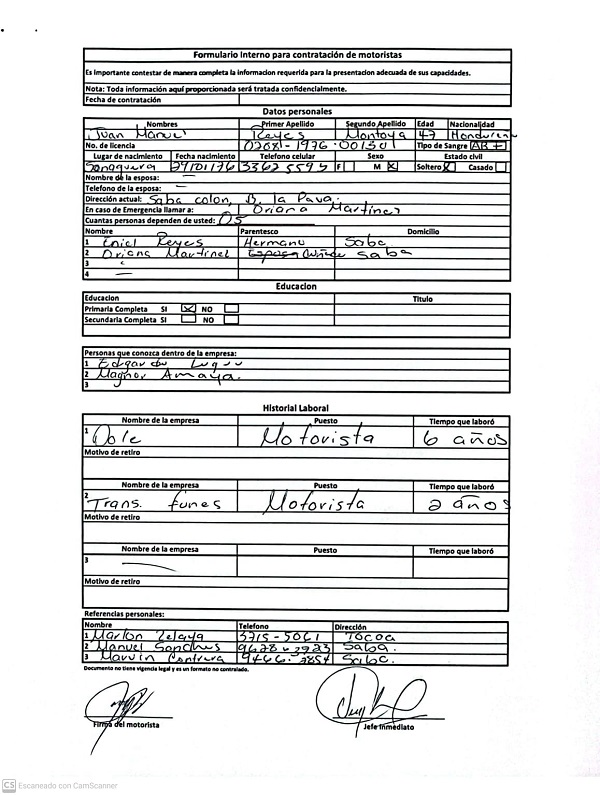 Formulario Interno para contratación de motoristas
Es Importante contestar de manera completa la informacion requerida para la presentacion adecuada de sus capacidades.
Nota: Toda información aquí proporcionada será tratada confidencialmente.
Fecha de contratación
Datos personales
Nombres Primer Apellido Segundo Apellido Edad Nacionalidad
Juan Manuel Reyes Montoya 47 Hondureña
No. de licencia 02081-1976-001301 Tipo de Sangre AB+
Lugar de nacimiento Fecha nacimiento Telefono celular Sexo Estado civil
Sonaguera 29/01/76 3362 5595 F M X Soltero X Casado
Nombre de la esposa: —
Telefono de la esposa: —
Dirección actual: Saba colon, B. la Pava.
En caso de Emergencia llamar a: Oriana Martinez
Cuantas personas dependen de usted: 05
Nombre Parentesco Domicilio
1 Eniel Reyes Hermano Saba
2 Oriana Martinez Saba
3
4 —
Educacion
Educacion Titulo
Primaria Completa SI X NO
Secundaria Completa SI NO
Personas que conozca dentro de la empresa:
1 Edgardo
2 Magnor Amaya.
3
Historial Laboral
Nombre de la empresa Puesto Tiempo que laboró
1 Dole Motorista 6 años
Motivo de retiro
Nombre de la empresa Puesto Tiempo que laboró
2 Trans. funes Motorista 2 años
Motivo de retiro
Nombre de la empresa Puesto Tiempo que laboró
3 —
Motivo de retiro
Referencias personales:
Nombre Telefono Dirección
1 Marlon Zelaya 3715-5061 Tocoa
2 Manuel Sanches 9628-2923 Saba.
3 Marvin Contrera 9466-2854 Saba.
Documento no tiene vigencia legal y es un formato no controlado.
Firma del motorista Jefe inmediato
CS Escaneado con CamScanner